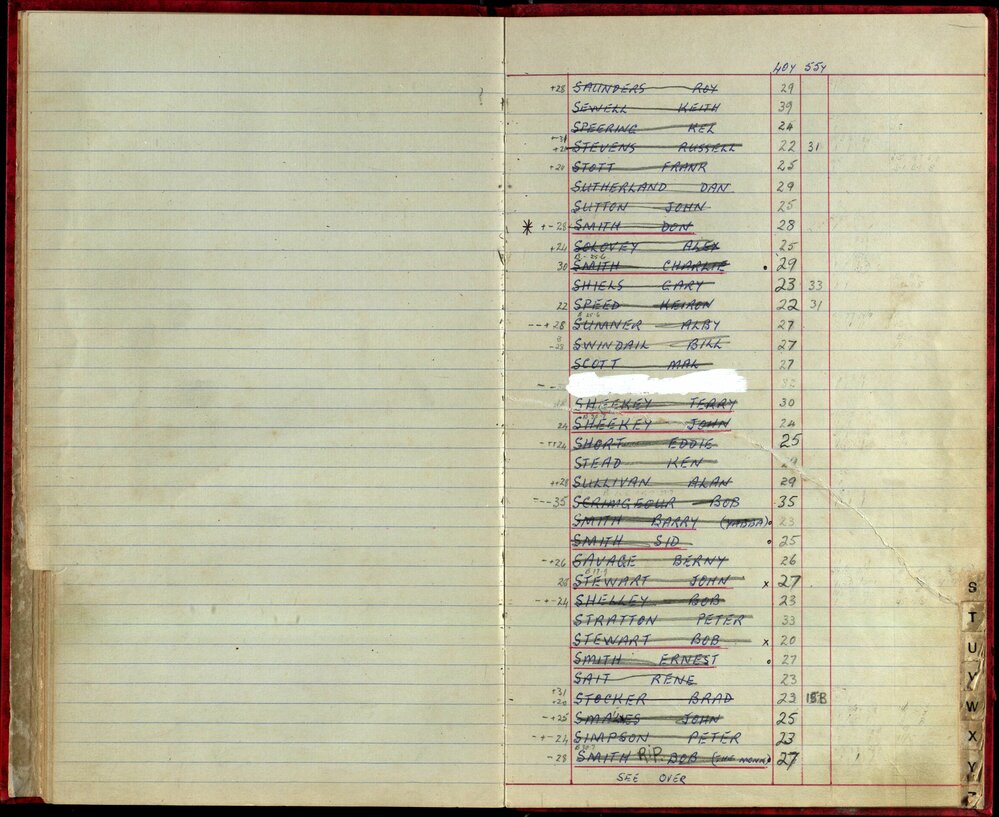 40Y 55Y
+28 SAUNDERS ROY 29
SEWELL KEITH 39
SPEERING KEL 24
+31
STEVENS RUSSELL 22 31
+24 STOTT FRANK 25
SUTHERLAND DAN 29
SUTTON JOHN 25
* +-28 SMITH DON 28
+24 SOLOVEY ALEX 25
30 SMITH CHARLIE . 29
SHIELS GARY 23 33
22 SPEED KEIRON 22 31
--+28 SUMNER ALBY 27
SWINDAIL BILL 27
SCOTT MAL 27
SHEEKEY TERRY 30
24 SHEEKEY JOHN 24
-++24 SHORT EDDIE 25
STEAD KEN
++28 SULLIVAN ALAN 29
---35 SCRIMGEOUR BOB 35
SMITH BARRY (YABBA) . 23
SMITH SID . 25
-+26 SAVAGE BERNY 26
28 STEWART JOHN x 27
-+-24 SHELLEY BOB 23
STRATTON PETER 33
STEWART BOB x 20
SMITH ERNEST . 27
SAIT RENE 23
+31
STOCKER BRAD 23
-+25 JOHN 25
-+-24 SIMPSON PETER 23
-28 SMITH R.I.P. BOB (THE MONK) 27
SEE OVER
S
T
U
W
X
Y